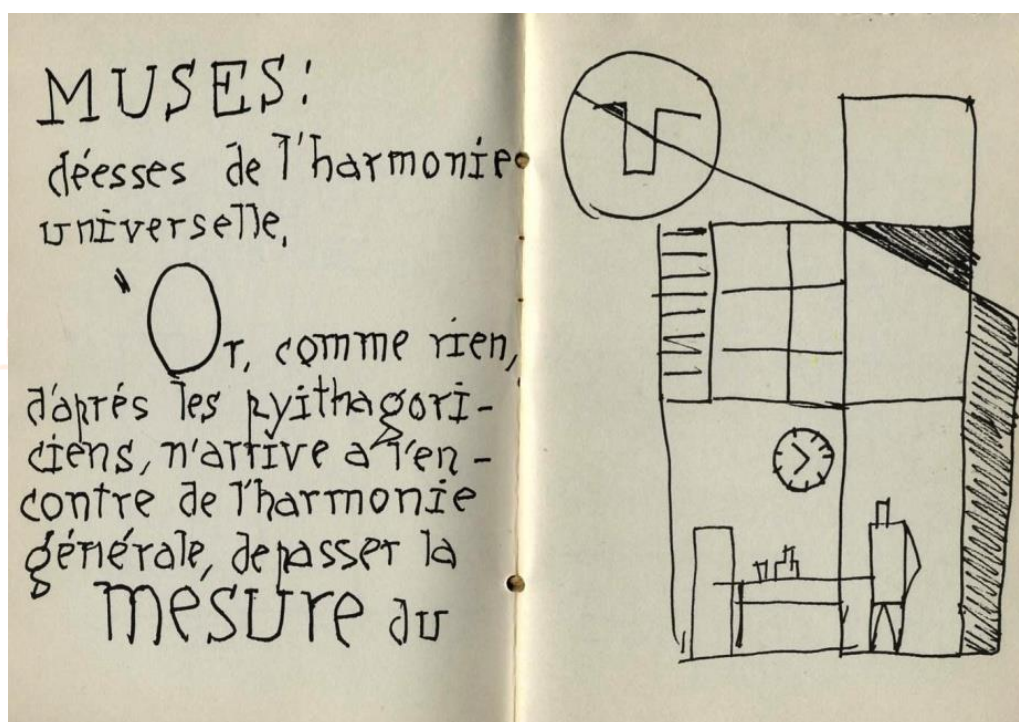 MUSES:
déesses de l'harmonie
universelle,
"Or, comme rien,
d'aprés les pyithagori-
ciens, n'arrive a l'en-
contre de l'harmonie
générale, depasser la
mesure du